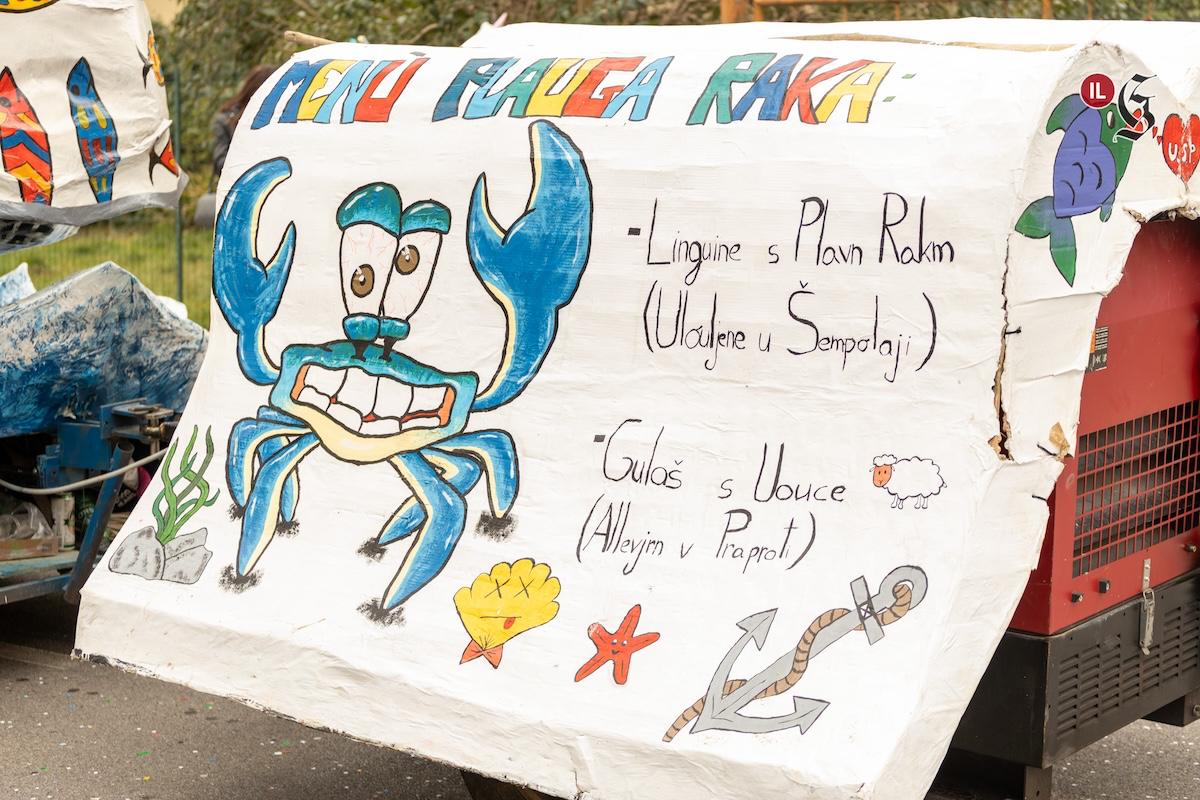 MENÙ PLAUGA RAKA:
IL S
U.SP
-Linguine s Plavn Rakm
(Uloujene u Šempolaji)
-Gulaš s Uouce
(Allevjrn v Praproti)